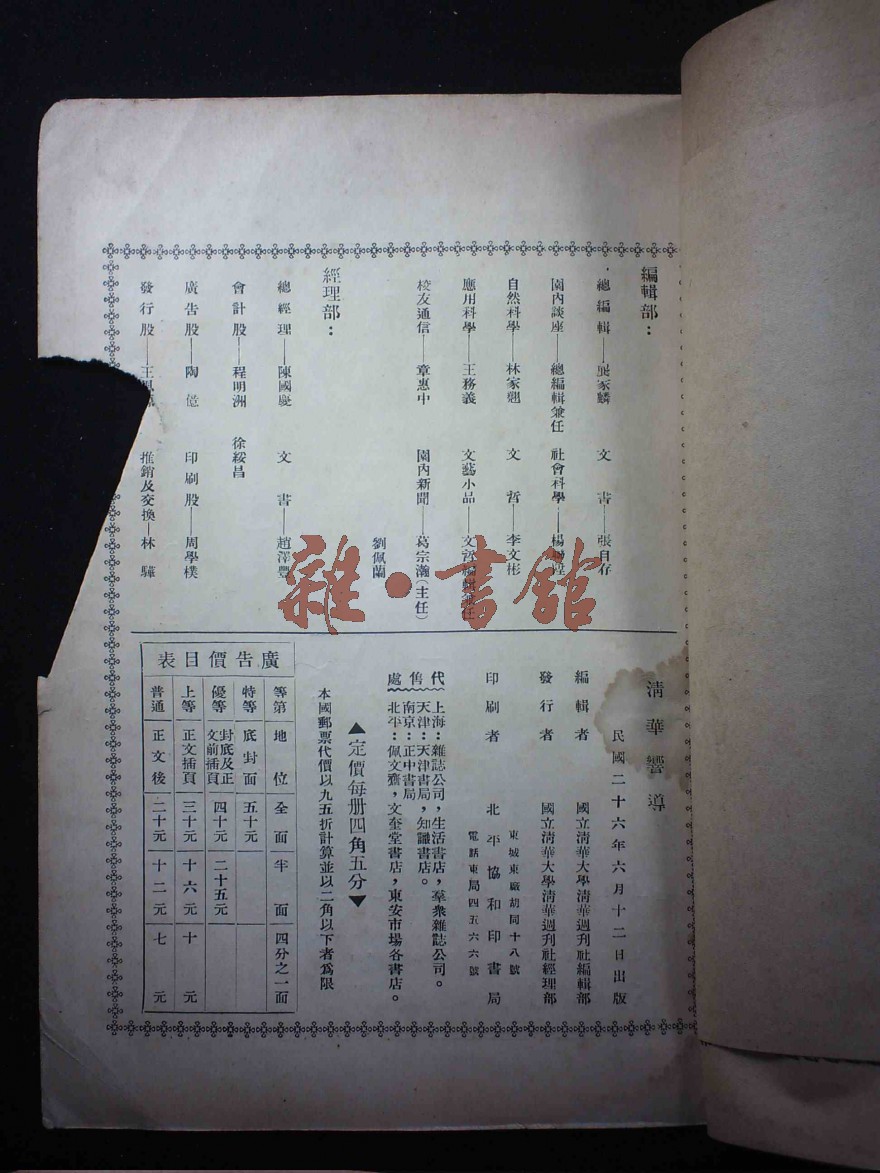 編輯部：
總編輯——展家麟　文書——張自存
園內談座——總編輯兼任　社會科學——楊
自然科學——林家翹　文哲——李文彬
應用科學——王務義　文藝小品——文　編輯兼任
校友通信——章惠中　園內新聞——葛宗瀚（主任）
劉佩蘭
經理部：
總經理——陳國慶　文書——趙澤豐
會計股——程明洲　徐綏昌
廣告股——陶億　印刷股——周學樸
發行股——王　推銷及交換——林驊
清華響導
民國二十六年六月十二日出版
編輯者　國立清華大學清華週刊社編輯部
發行者　國立清華大學清華週刊社經理部
印刷者　北平協和印書局
東城東廠胡同十八號
電話東局四五六六號
代售處
上海：雜誌公司，生活書店，羣衆雜誌公司。
天津：天津書局，知識書店。
南京：正中書局
北平：佩文齋，文奎堂書店，東安市場各書店。
▲定價每册四角五分▼
本國郵票代價以九五折計算並以二角以下者爲限
廣告價目表
等第　地位　全面　半面　四分之一面
特等　底封面　五十元
優等　封底及正文前插頁　四十元　二十五元
上等　正文插頁　三十元　十六元　十元
普通　正文後　二十元　十二元　七元
雜·書館